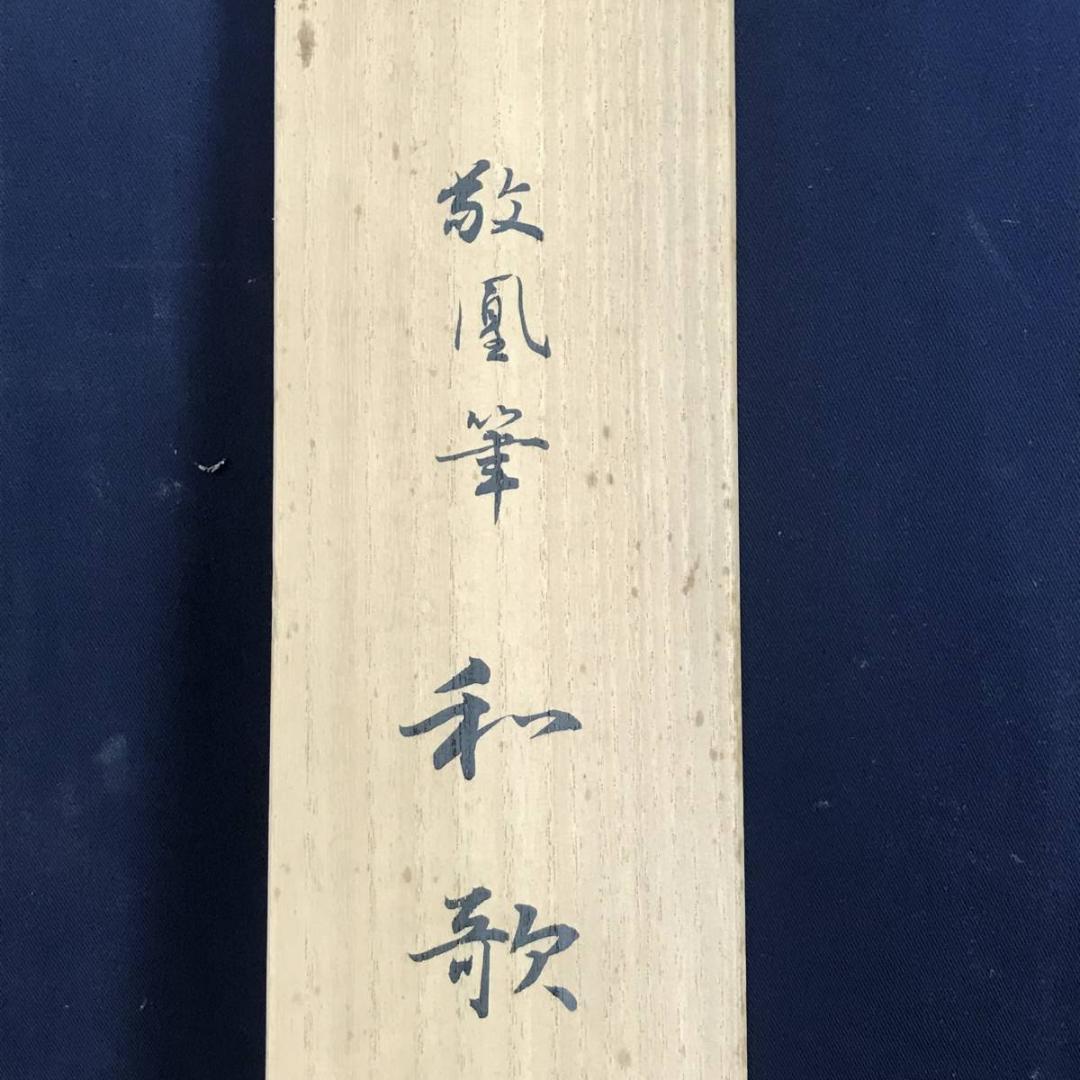 敬凰筆 和歌